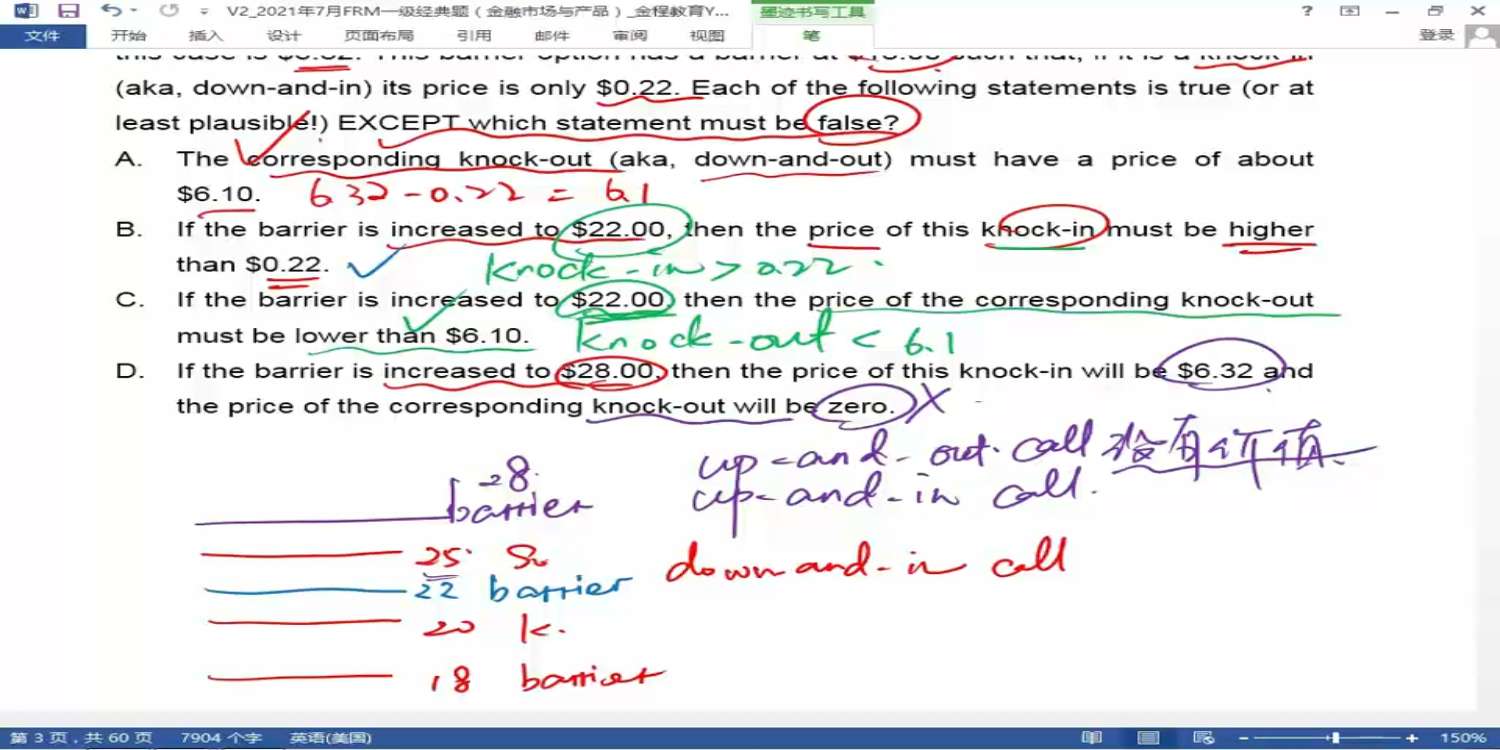 V2_2021年7月FRM一级经典题（金融市场与产品）_金程教育Y...
墨迹书写工具
文件 开始 插入 设计 页面布局 引用 邮件 审阅 视图 笔 登录
(aka, down-and-in) its price is only $0.22. Each of the following statements is true (or at
least plausible!) EXCEPT which statement must be false?
A. The corresponding knock-out (aka, down-and-out) must have a price of about
$6.10. 6.32 - 0.22 = 6.1
B. If the barrier is increased to $22.00, then the price of this knock-in must be higher
than $0.22. knock-in > 0.22
C. If the barrier is increased to $22.00, then the price of the corresponding knock-out
must be lower than $6.10. knock-out < 6.1
D. If the barrier is increased to $28.00, then the price of this knock-in will be $6.32 and
the price of the corresponding knock-out will be zero.
28
barrier
up-and-out call 没有价值
up-and-in call
25 S₀
22 barrier
down-and-in call
20 K
18 barrier
第 3 页，共 60 页 7904 个字 英语(美国) 150%